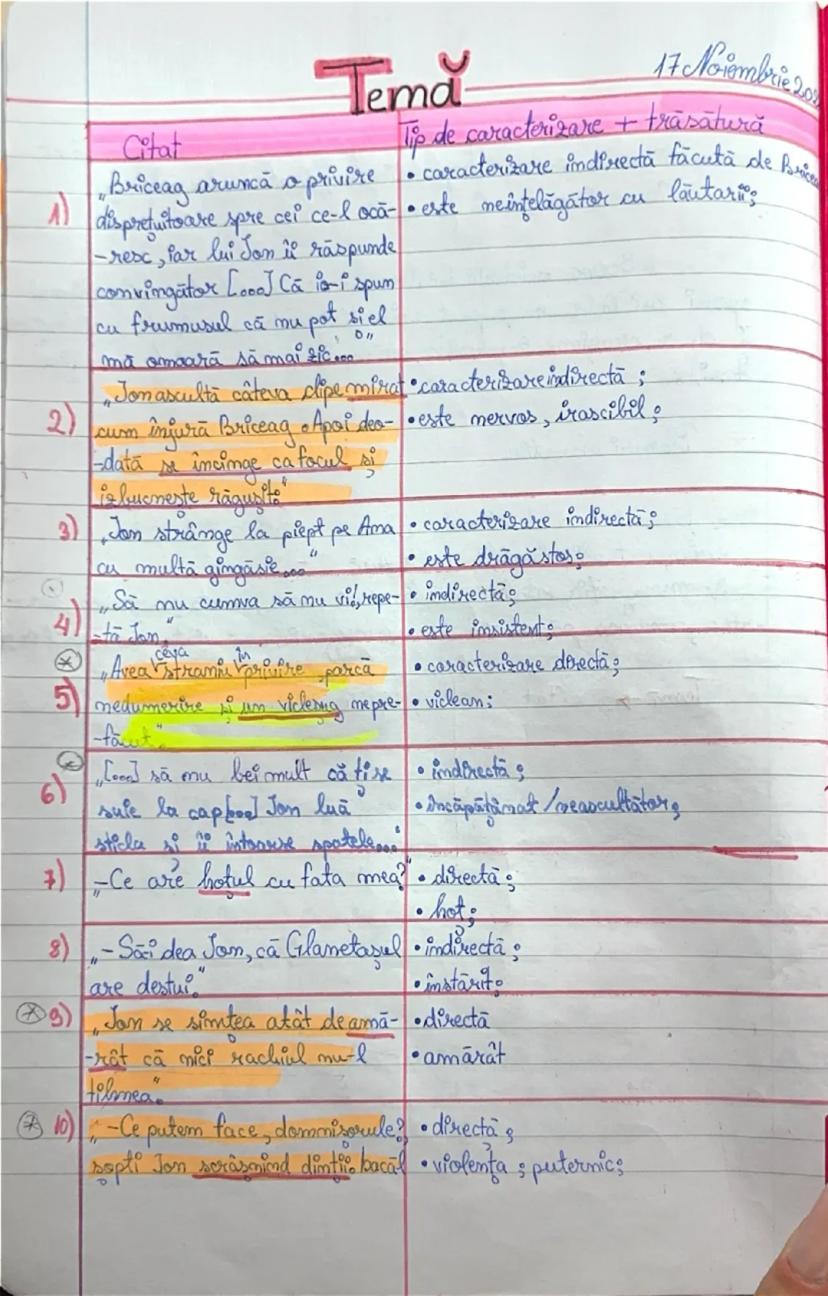 17 Noiembrie
Temă
Citat
Tip de caracterizare + trăsătură
1)
„Briceag aruncă o privire
disprețuitoare spre cei ce-l ocă-
-resc, iar lui Ion îi răspunde
convingător [...] Că io-i spun
cu frumusul că nu pot și el
mă omoară să mai zic..."
• caracterizare indirectă făcută de
• este neînțelăgător cu lăutarii;
2)
„Ion ascultă câteva clipe mirat
cum înjură Briceag. Apoi deo-
-dată se încinge ca focul și
izbucnește răgușit."
• caracterizare indirectă;
• este nervos, irascibil;
3)
„Ion strânge la piept pe Ana
cu multă gingăsie..."
• caracterizare indirectă;
• este drăgăstos;
4)
„Să nu cumva să nu vii, repe-
-tă Ion."
• indirectă;
• este insistent;
5)
„Avea ceva straniu în privire, parcă
nedumerire și un vicleșug nepre-
-făcut"
• caracterizare directă;
• viclean;
6)
„[...] să nu bei mult că ți se
suie la cap[...] Ion luă
sticla și îi întoarse spatele..."
• indirectă;
• încăpățânat/neascultător;
7)
„-Ce are hoțul cu fata mea?"
• directă;
• hoț;
8)
„-Săi dea Ion, că Glanetașul
are destui."
• indirectă;
• înstărit;
9)
„Ion se simțea atât de amă-
-rât că nici rachiul nu-l
tihnea."
• directă
• amărât
10)
„-Ce putem face, domnișorule?
șopti Ion scrâșnind dinții.
• directă;
• violența; puternic;